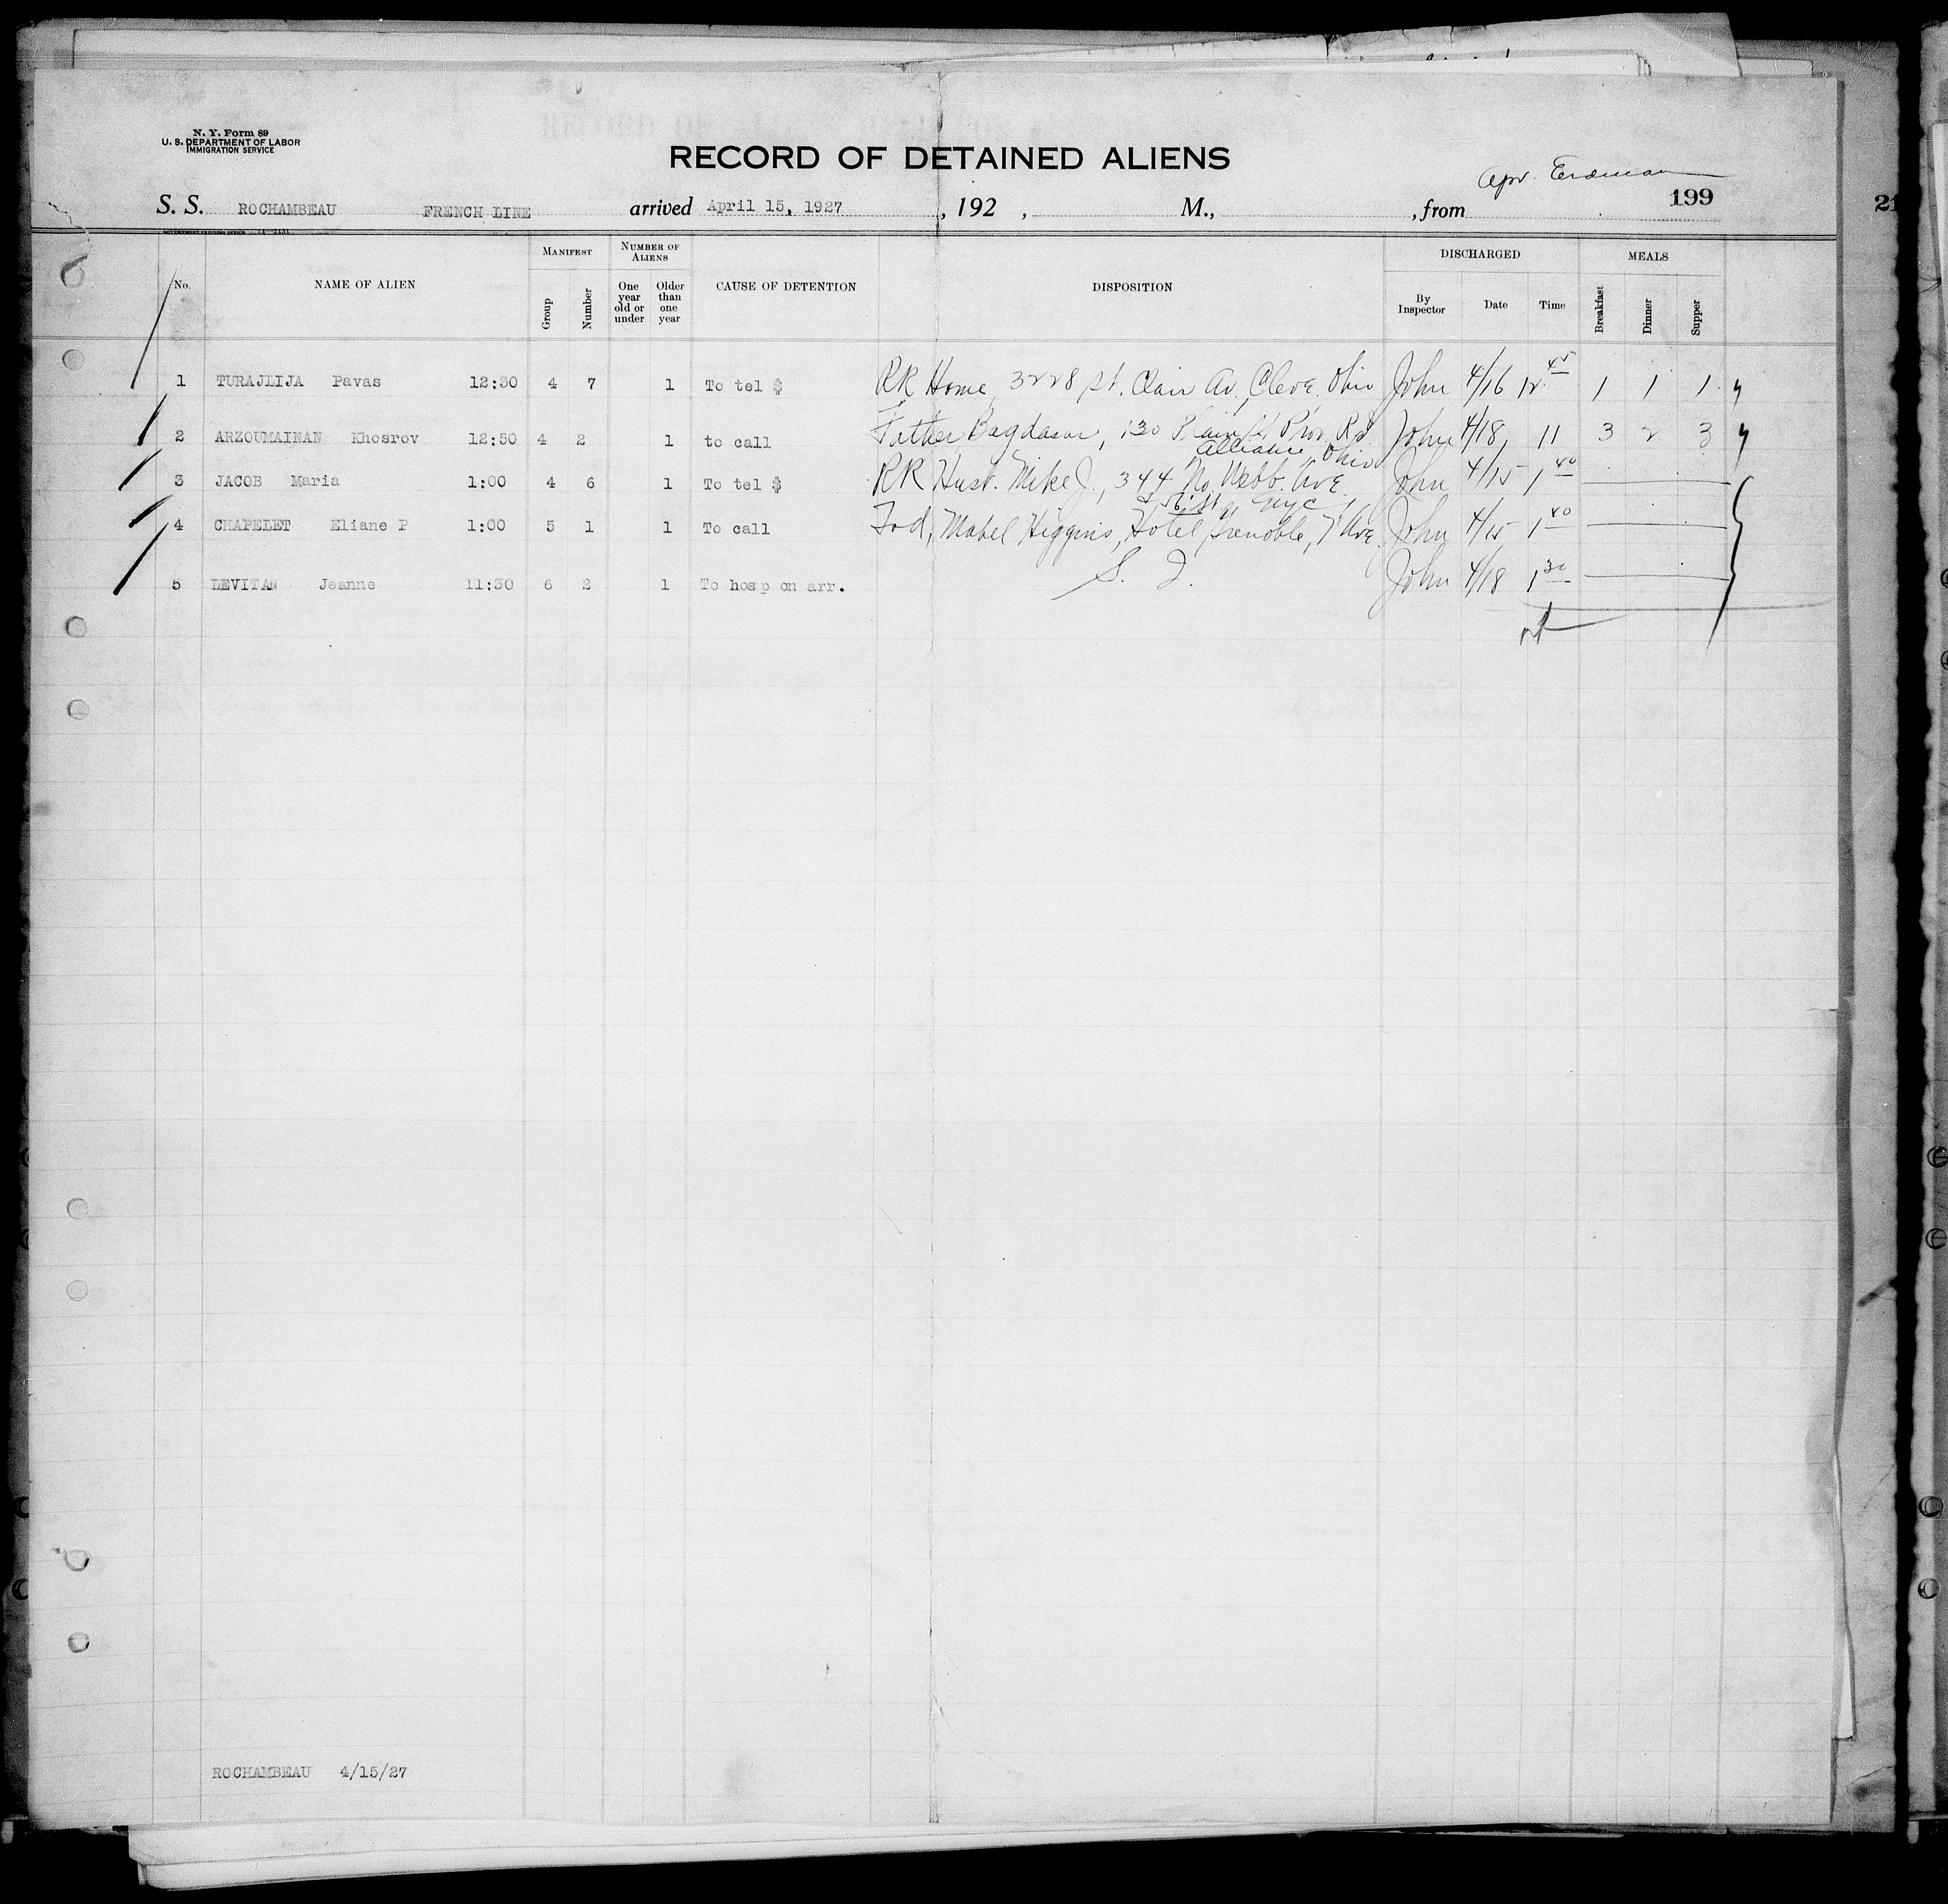 N. Y. Form 89
U. S. DEPARTMENT OF LABOR
IMMIGRATION SERVICE
RECORD OF DETAINED ALIENS
S. S. ROCHAMBEAU FRENCH LINE arrived April 15, 1927, 192 , M., , from 199
21
No. NAME OF ALIEN MANIFEST Group Number NUMBER OF ALIENS One year old or under Older than one year CAUSE OF DETENTION DISPOSITION DISCHARGED By Inspector Date Time MEALS Breakfast Dinner Supper
1 TURAJLIJA Pavas 12:30 4 7 1 To tel $ RR Home, 3228 St. Clair Av., Cleve. Ohio John 4/16 12 45 1 1 1
2 ARZOUMAINAN Khosrov 12:50 4 2 1 to call Father Bagdasar, 130 Plain St Prov. R.I. John 4/18 11 3 2 3
Alliance, Ohio
3 JACOB Maria 1:00 4 6 1 To tel $ RR Husb. Mike J., 344 No. Webb. Ave. John 4/15 1 40
NYC
4 CHAPELET Eliane P 1:00 5 1 1 To call Frd, Mabel Higgins, Hotel Grenoble, 7 Ave John 4/15 1 40
5 LEVITAN Jeanne 11:30 6 2 1 To hosp on arr. S. I. John 4/18 1 30
ROCHAMBEAU 4/15/27